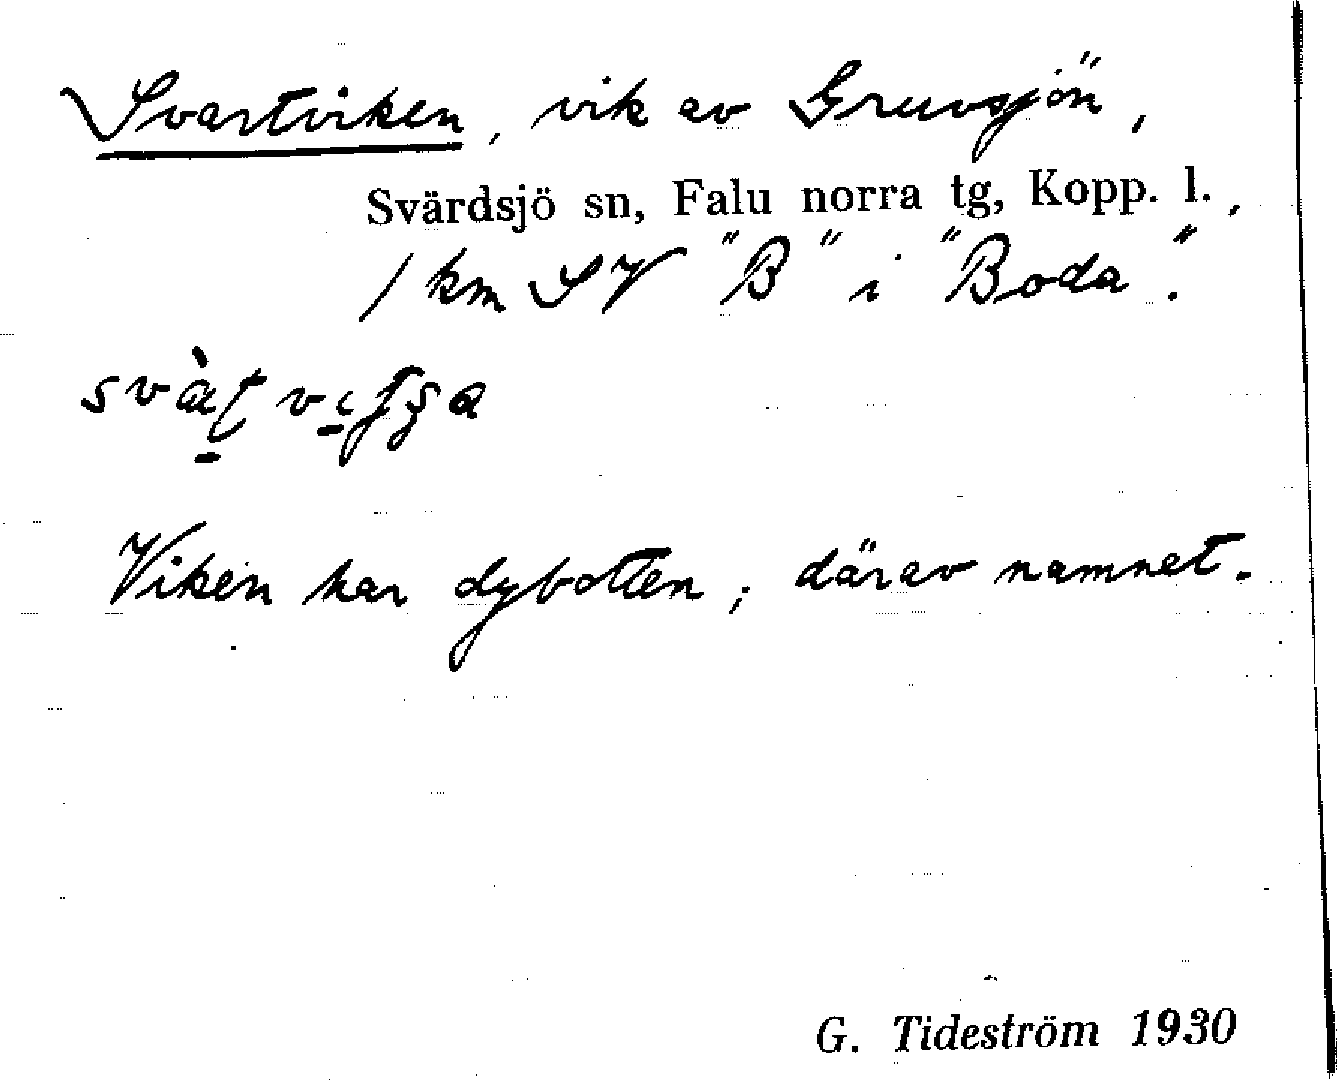 Svartviken, vik av Gruvsjön,
Svärdsjö sn, Falu norra tg, Kopp. l.,
1 km SV "B" i "Boda".
Viken har dybotten, därav namnet.
G. Tideström 1930